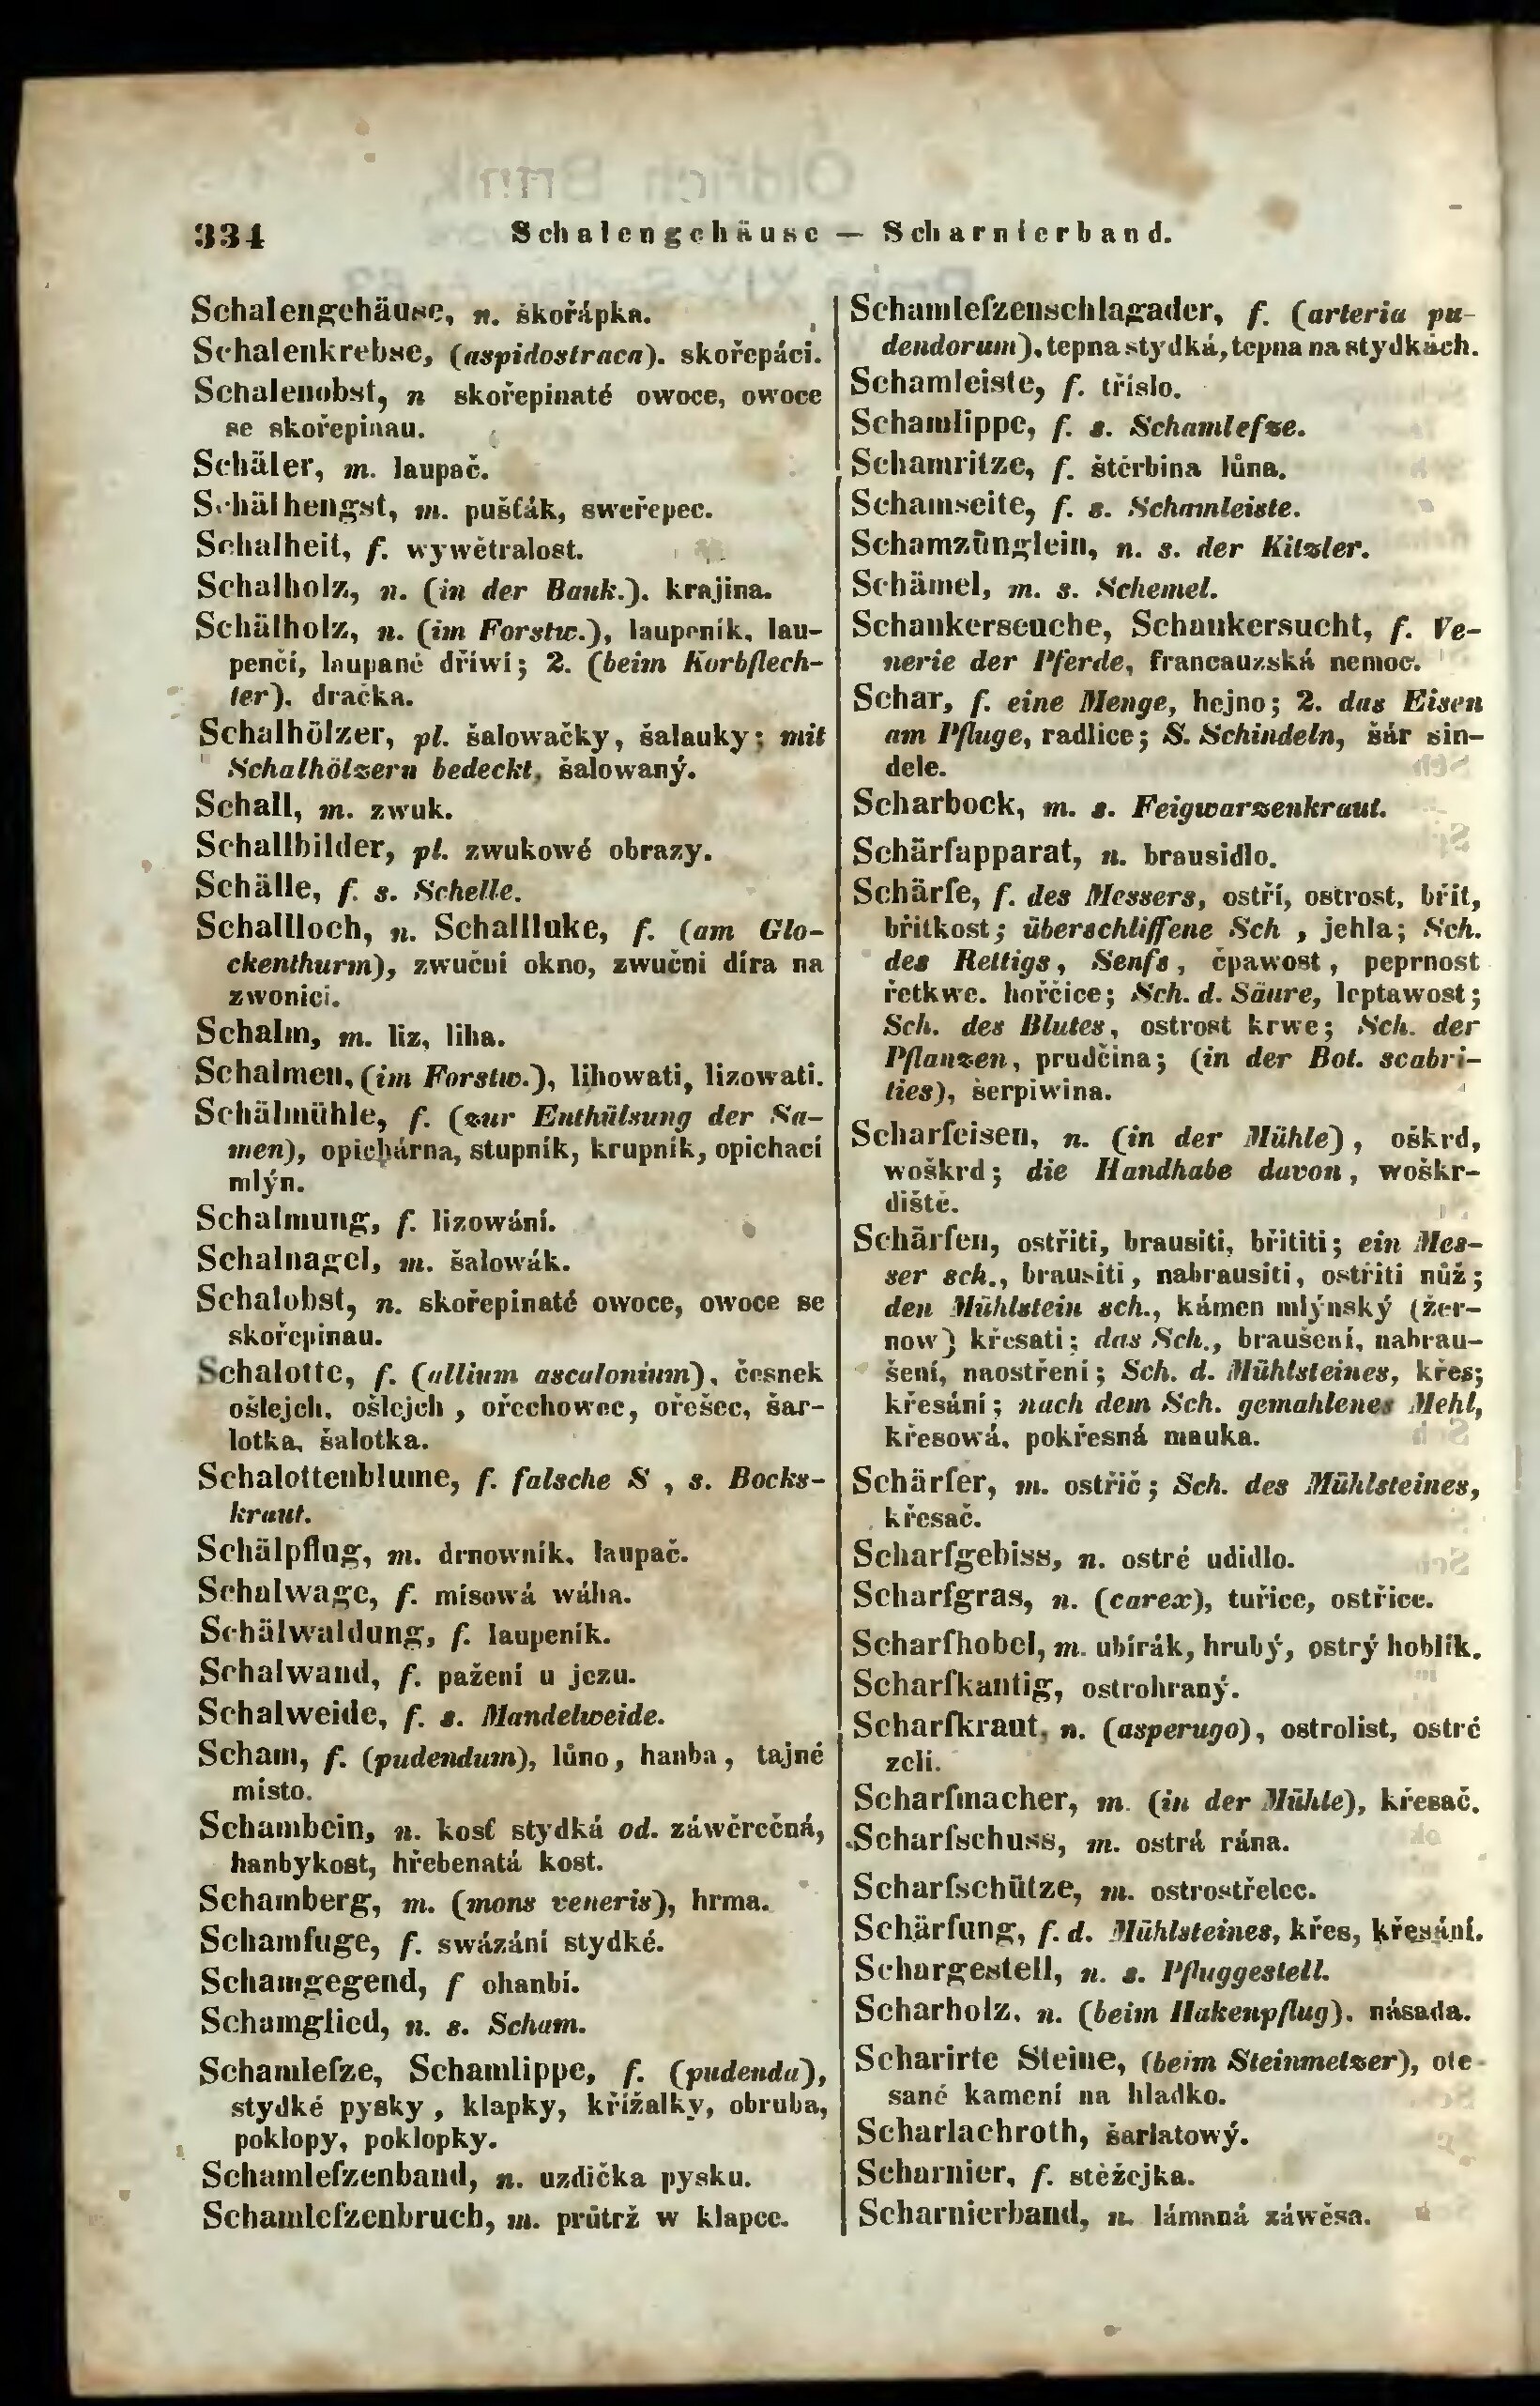 334
Schalengehäuse — Scharnierband.
Schalengehäuse, n. škořápka.
Schalenkrebse, (aspidostraca). skořepáci.
Schalenobst, n skořepinaté owoce, owoce
se skořepinau.
Schäler, m. laupač.
Schälhengst, m. pušťák, sweřepec.
Schalheit, f. wywětralost.
Schalholz, n. (in der Bauk.). krajina.
Schälholz, n. (im Forstw.), laupeník, lau-
penčí, laupané dříwí; 2. (beim Korbflech-
ter). dračka.
Schalhölzer, pl. šalowačky, šalauky; mit
Schalhölzern bedeckt, šalowaný.
Schall, m. zwuk.
Schallbilder, pl. zwukowé obrazy.
Schälle, f. s. Schelle.
Schallloch, n. Schallluke, f. (am Glo-
ckenthurm), zwučni okno, zwučni díra na
zwonici.
Schalm, m. liz, liha.
Schalmen, (im Forstw.), lihowati, lizowati.
Schälmühle, f. (zur Enthülsung der Sa-
men), opichárna, stupník, krupník, opichací
mlýn.
Schalmung, f. lizowání.
Schalnagel, m. šalowák.
Schalobst, n. skořepinaté owoce, owoce se
skořepinau.
Schalotte, f. (allium ascalonium), česnek
ošlejch, ošlejch , ořechowec, ořešec, šar-
lotka, šalotka.
Schalottenblume, f. falsche S , s. Bocks-
kraut.
Schälpflug, m. drnowník, laupač.
Schalwage, f. mísowá wáha.
Schälwaldung, f. laupeník.
Schalwand, f. pažení u jezu.
Schalweide, f. s. Mandelweide.
Scham, f. (pudendum), lůno, hanba, tajné
místo.
Schambein, n. kosť stydká od. záwěrečná,
hanbykost, hřebenatá kost.
Schamberg, m. (mons veneris), hrma.
Schamfuge, f. swázání stydké.
Schamgegend, f ohanbí.
Schamglied, n. s. Scham.
Schamlefze, Schamlippe, f. (pudenda),
stydké pysky , klapky, křížalky, obruba,
poklopy, poklopky.
Schamlefzenband, n. uzdička pysku.
Schamlefzenbruch, m. průtrž w klapce.
Schamlefzenschlagader, f. (arteria pu-
dendorum), tepna stydká, tepna na stydkách.
Schamleiste, f. tříslo.
Schamlippe, f. s. Schamlefze.
Schamritze, f. štěrbina lůna.
Schamseite, f. s. Schamleiste.
Schamzünglein, n. s. der Kitzler.
Schämel, m. s. Schemel.
Schankerseuche, Schankersucht, f. Ve-
nerie der Pferde, francauzská nemoc.
Schar, f. eine Menge, hejno; 2. das Eisen
am Pfluge, radlice; S. Schindeln, šár šin-
dele.
Scharbock, m. s. Feigwarzenkraut.
Schärfapparat, n. brausidlo.
Schärfe, f. des Messers, ostří, ostrost, břit,
břitkost; überschliffene Sch , jehla; Sch.
des Rettigs, Senfs, čpawost, peprnost
řetkwe. hořčice; Sch. d. Säure, leptawost;
Sch. des Blutes, ostrost krwe; Sch. der
Pflanzen, prudčina; (in der Bot. scabri-
ties), šerpiwina.
Scharfeisen, n. (in der Mühle), oškrd,
woškrd; die Handhabe davon, woškr-
diště.
Schärfen, ostřiti, brausiti, břititi; ein Mes-
ser sch., brausiti, nabrausiti, ostřiti nůž;
den Mühlstein sch., kámen mlýnský (žer-
now) křesati; das Sch., braušení, nabrau-
šení, naostření; Sch. d. Mühlsteines, křes;
křesání; nach dem Sch. gemahlenes Mehl,
křesowá, pokřesná mauka.
Schärfer, m. ostřič; Sch. des Mühlsteines,
křesač.
Scharfgebiss, n. ostré udidlo.
Scharfgras, n. (carex), tuřice, ostřice.
Scharfhobel, m. ubírák, hrubý, ostrý hoblík.
Scharfkantig, ostrohraný.
Scharfkraut, n. (asperugo), ostrolist, ostré
zelí.
Scharfmacher, m. (in der Mühle), křesač.
Scharfschuss, m. ostrá rána.
Scharfschütze, m. ostrostřelec.
Schärfung, f. d. Mühlsteines, křes, křesání.
Schargestell, n. s. Pfluggestell.
Scharholz, n. (beim Hakenpflug). násada.
Scharirte Steine, (beim Steinmetzer), ote-
sané kamení na hladko.
Scharlachroth, šarlatowý.
Scharnier, f. stěžejka.
Scharnierband, n. lámaná záwěsa.